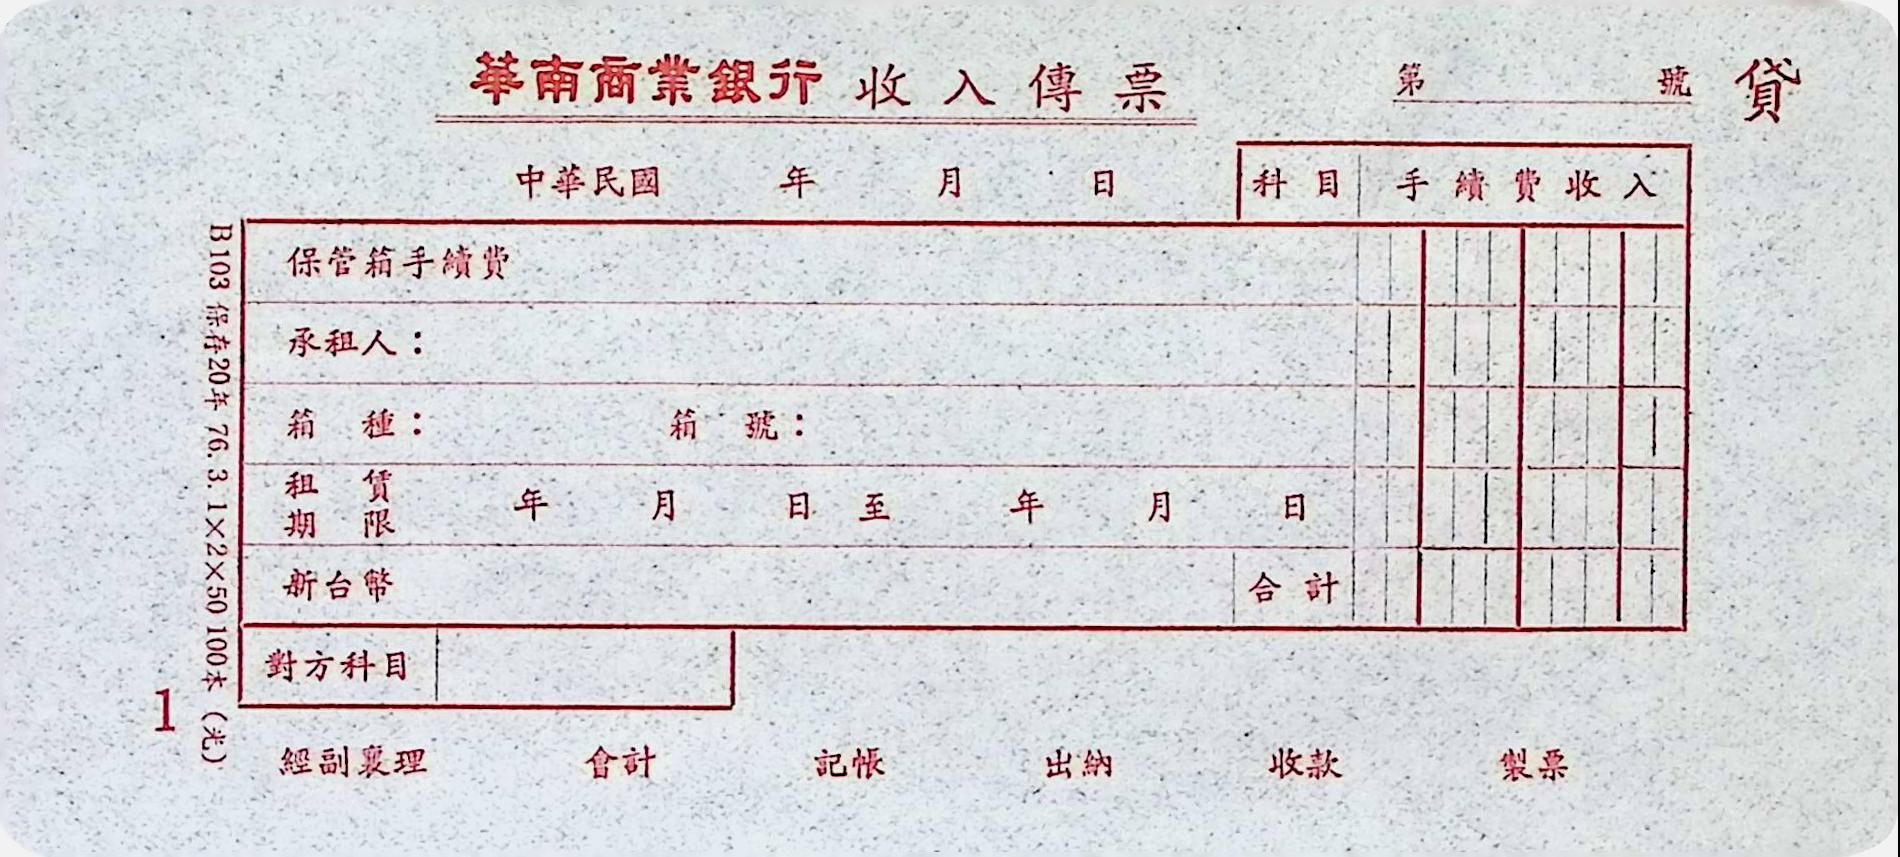 華南商業銀行 收入傳票 第 號 貸
中華民國 年 月 日 科目 手續費收入
保管箱手續費
承租人：
箱種： 箱號：
租賃期限 年 月 日 至 年 月 日
新台幣 合計
對方科目
經副襄理 會計 記帳 出納 收款 製票
B103 保存20年 76.3.1×2×50 100本（光）
1